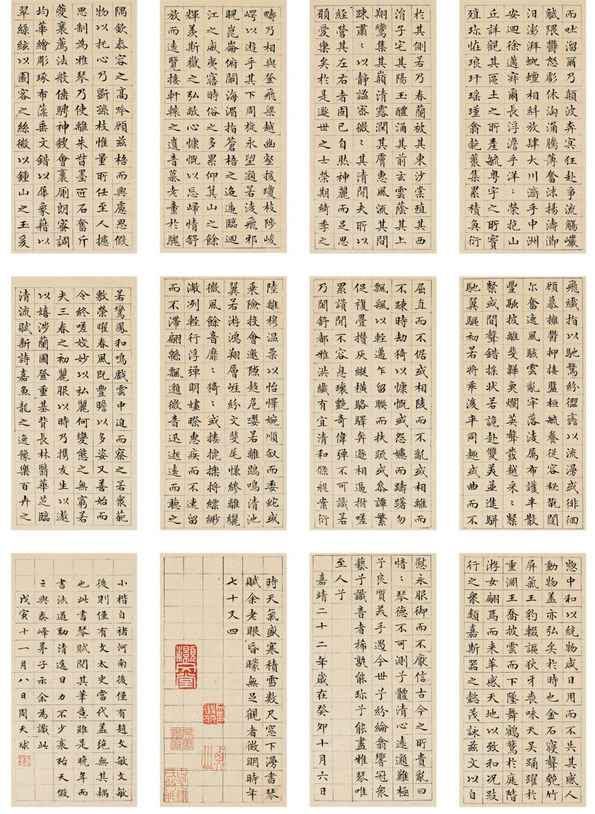 而吐溜爾乃顛波奔突狂赴爭流觸巖
觝隈鬱怒彪休洶涌騰薄奮沫揚濤瀄
汨澎湃蜿蟺相糾放肆大川濟乎中洲
安迴徐邁寂爾長浮澹乎洋〻縈抱山
丘詳觀其區土之所產毓奧宇之所寶
殖珍怪琅玕瑤瑾翕赩叢集累積奐衍
於其側若乃春蘭被其東沙棠殖其西
涓子宅其陽玉醴涌其前玄雲蔭其上
翔鸞集其巔清露潤其膚惠風流其間
竦肅〻以靜謐密微〻其清閑夫所以
經營其左右者固已自然神麗而足思
願愛樂矣於是遯世之士榮期綺季之
疇乃相與登飛梁越幽壑援瓊枝陟峻
崿以遊乎其下周旋永望邈若凌飛邪
睨崑崙俯闞海湄指蒼梧之迢遞臨迴
江之威夷寤時俗之多累仰箕山之餘
輝羨斯嶽之弘敞心慷慨以忘歸情舒
放而遠覽接軒轅之遺音慕老童於騩
隅欽泰容之高吟顧茲梧而興慮思假
物以托心乃斲孫枝惟量所任至人攄
思制為雅琴乃使離朱督墨匠石奮斤
夔襄薦法般倕騁神鎪會裛廁朗密調
均華繪彫琢布藻垂文錯以犀象籍以
翠綠絃以園客之絲徽以鍾山之玉爰
飛纖指以馳騖紛譶以流漫或徘徊
顧慕擁鬱抑按盤桓毓養從容秘翫闥
爾奮逸風駭雲亂牢落凌厲布濩半散
豐融披離斐韡奐爛英聲發越采〻粲
粲或間聲錯糅狀若詭赴雙美並進駢
馳翼驅初若將乖後卒同趣或曲而不
屈直而不倨或相凌而不亂或相離而
不殊時劫掎以慷慨或怨㜘而躊躇忽
飄飖以輕邁乍留聯而扶疏或參譚繁
促複疊攢仄縱橫駱驛奔遯相逼拊嗟
累讚間不容息瓌豔奇偉殫不可識若
乃閑舒都雅洪纖有宜清和條昶案衍
陸離穆溫柔以怡懌婉順敘而委蛇或
乘險投會邀隙趨危嚶若離鵾鳴清池
翼若游鴻翔層崖紛文斐尾慊縿離纚
微風餘音靡〻猗〻或摟批擽捋縹繚
潎冽輕行浮彈明嫿䁘惠疾而不速留
而不滯翩緜飄邈微音迅逝遠而聽之
若鸞鳳和鳴戲雲中迫而察之若衆葩
敷榮曜春風既豐贍以多姿又善始而
令終嗟姣妙以弘麗何變態之無窮若
夫三春之初麗服以時乃攜友生以遨
以嬉涉蘭圃登重基背長林翳華芝臨
清流賦新詩嘉魚龍之逸豫樂百卉之
總中和以統物咸日用而不失其感人
動物蓋亦弘矣於時也金石寢聲匏竹
屏氣王豹輟謳狄牙喪味天吳踊躍於
重淵王喬披雲而下墜舞鸑鷟於庭階
游女飄焉而來萃感天地以致和況蚑
行之衆類嘉斯器之懿茂詠茲文以自
慰永服御而不厭信古今之所貴亂曰
愔〻琴德不可測兮體清心遠邈難極
兮良質美手遇今世兮紛綸翕響冠衆
藝兮識音者稀孰能珍兮能盡雅琴唯
至人兮
嘉靖二十二年歲在癸卯十月六日
時天氣盛寒積雪數尺窓下漫書琴
賦余老眼昏矇無足觀者徵明時年
七十又四
小楷自褚河南後僅有趙文敏文敏
後則僅有文太史當代蓋絕無其耦
也此書琴賦閱其筆意雖是晚年而
書法遒勁清逸目力不少衰殆天假
之與泰峰子示余為識此
戊寅十一月八日周天球